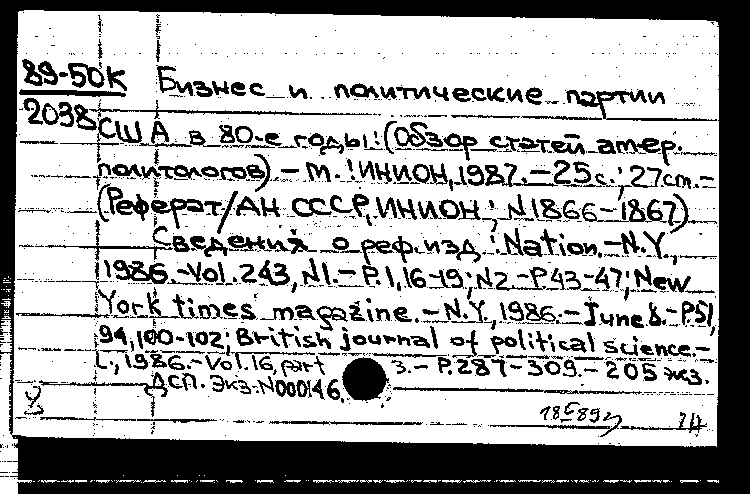 89-50К Бизнес и политические партии
2038 США в 80-е годы: (Обзор статей амер.
политологов) – М.: ИНИОН, 1987. – 25 с.; 27 см. –
(Реферат/АН СССР, ИНИОН; N 1866-1867)
Сведения о реф. изд.: Nation. – N.Y.,
1986. – Vol. 243, N1. – P. 1, 16-19; N2. – P. 43-47; New
York times magazine. – N.Y., 1986. – June 8. – P. 51,
94, 100-102; British journal of political science. –
L., 1986. – Vol. 16, part 3. – P. 287-309. – 205 экз.
ДСП. Экз. N000146.